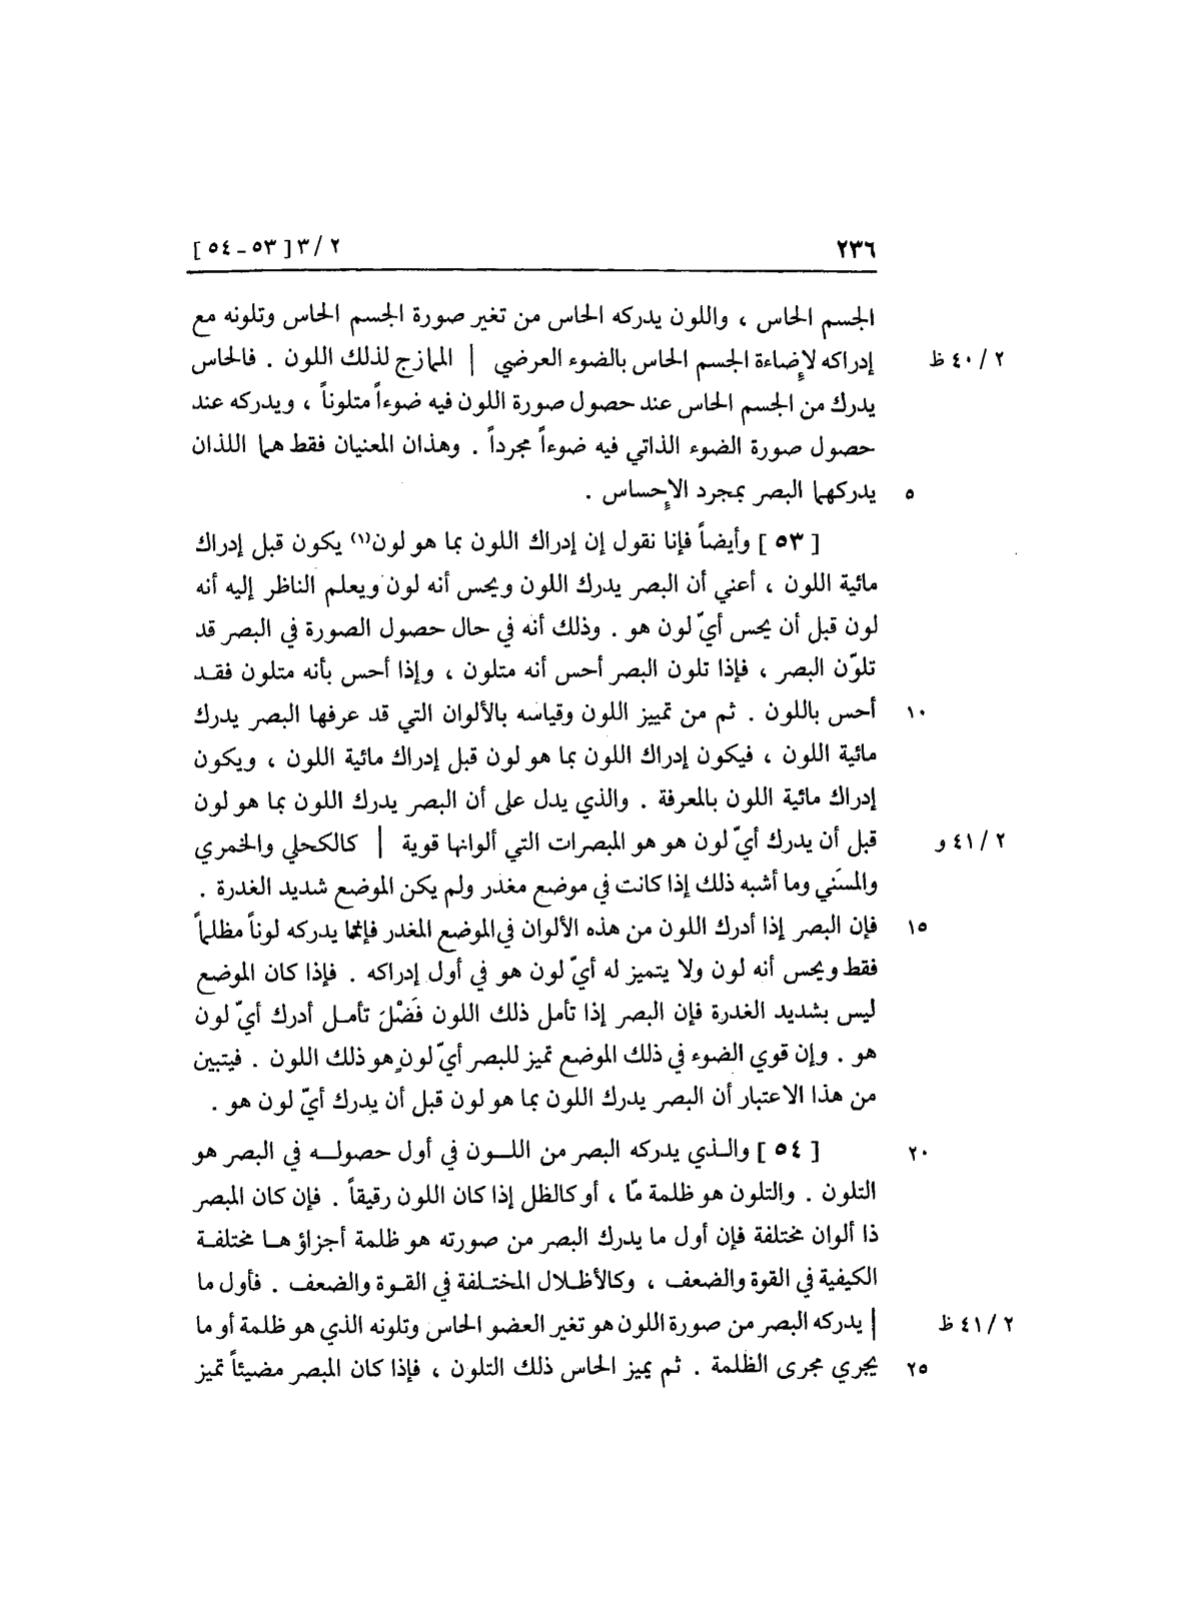 ٢٣٦ ٢/ ٣ [ ٥٣ـ ٥٤ ]
الجسم الحاس ، واللون يدركه الحاس من تغير صورة الجسم الحاس وتلونه مع
٢/ ٤٠ ظ إدراكه لإضاءة الجسم الحاس بالضوء العرضي | الممازج لذلك اللون . فالحاس
يدرك من الجسم الحاس عند حصول صورة اللون فيه ضوءاً متلوناً ، ويدركه عند
حصول صورة الضوء الذاتي فيه ضوءاً مجرداً . وهذان المعنيان فقط هما اللذان
٥ يدركهما البصر بمجرد الإحساس .
[ ٥٣ ] وأيضاً فإنا نقول إن إدراك اللون بما هو لون(١) يكون قبل إدراك
مائية اللون ، أعني أن البصر يدرك اللون ويحس أنه لون ويعلم الناظر إليه أنه
لون قبل أن يحس أيّ لون هو . وذلك أنه في حال حصول الصورة في البصر قد
تلوّن البصر ، فإذا تلون البصر أحس أنه متلون ، وإذا أحس بأنه متلون فقـد
١٠ أحس باللون . ثم من تمييز اللون وقياسه بالألوان التي قد عرفها البصر يدرك
مائية اللون ، فيكون إدراك اللون بما هو لون قبل إدراك مائية اللون ، ويكون
إدراك مائية اللون بالمعرفة . والذي يدل على أن البصر يدرك اللون بما هو لون
٢/ ٤١ و قبل أن يدرك أيّ لون هو هو المبصرات التي ألوانها قوية | كالكحلي والخمري
والمسَني وما أشبه ذلك إذا كانت في موضع مغدر ولم يكن الموضع شديد الغدرة .
١٥ فإن البصر إذا أدرك اللون من هذه الألوان في الموضع المغدر فإنما يدركه لوناً مظلماً
فقط ويحس أنه لون ولا يتميز له أيّ لون هو في أول إدراكه . فإذا كان الموضع
ليس بشديد الغدرة فإن البصر إذا تأمل ذلك اللون فَضْلَ تأمـل أدرك أيّ لون
هو . وإن قوي الضوء في ذلك الموضع تميز للبصر أيّ لونٍ هو ذلك اللون . فيتبين
من هذا الاعتبار أن البصر يدرك اللون بما هو لون قبل أن يدرك أيّ لون هو .
٢٠ [ ٥٤ ] والـذي يدركه البصر من اللـون في أول حصولـه في البصر هو
التلون . والتلون هو ظلمة مّا ، أو كالظل إذا كان اللون رقيقاً . فإن كان المبصر
ذا ألوان مختلفة فإن أول ما يدرك البصر من صورته هو ظلمة أجزاؤهـا مختلفـة
الكيفية في القوة والضعف ، وكالأظـلال المختـلفة في القـوة والضعف . فأول ما
٢/ ٤١ ظ | يدركه البصر من صورة اللون هو تغير العضو الحاس وتلونه الذي هو ظلمة أو ما
٢٥ يجري مجرى الظلمة . ثم يميز الحاس ذلك التلون ، فإذا كان المبصر مضيئاً تميز